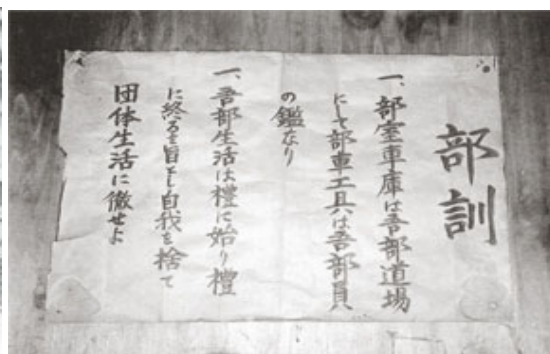 部訓
一、部室車庫は吾部道場
にして部車工具は吾部員
の鑑なり
一、吾部生活は禮に始り禮
に終るを旨とし自我を捨て
団体生活に徹せよ